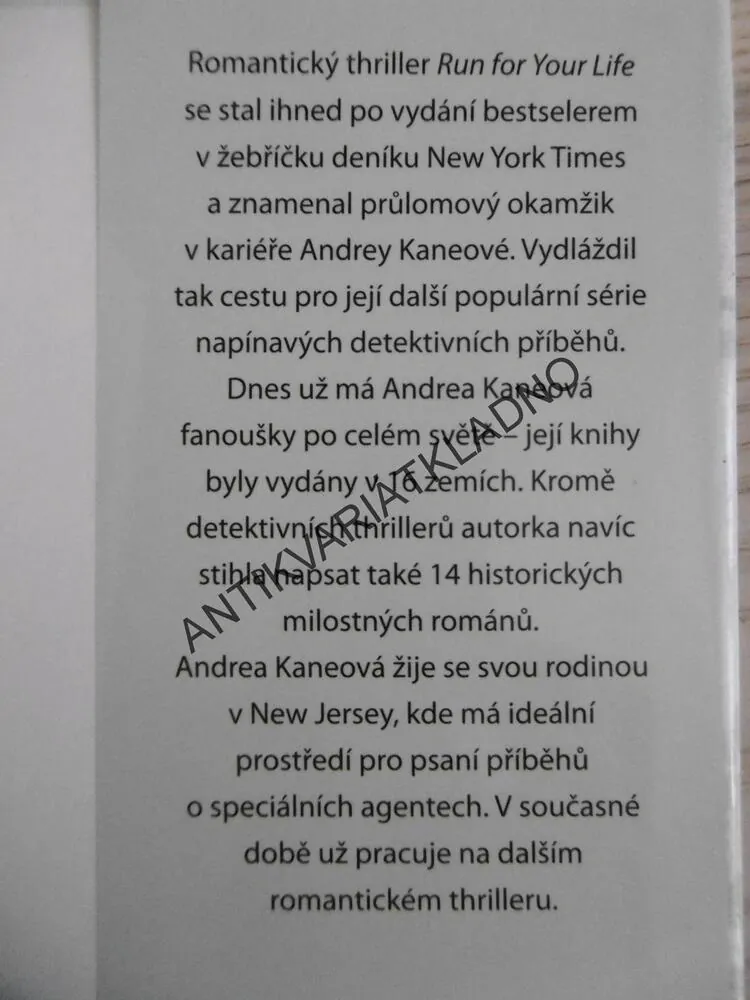 Romantický thriller Run for Your Life
se stal ihned po vydání bestselerem
v žebříčku deníku New York Times
a znamenal průlomový okamžik
v kariéře Andrey Kaneové. Vydláždil
tak cestu pro její další populární série
napínavých detektivních příběhů.
Dnes už má Andrea Kaneová
fanoušky po celém světě – její knihy
byly vydány v 16 zemích. Kromě
detektivních thrillerů autorka navíc
stihla napsat také 14 historických
milostných románů.
Andrea Kaneová žije se svou rodinou
v New Jersey, kde má ideální
prostředí pro psaní příběhů
o speciálních agentech. V současné
době už pracuje na dalším
romantickém thrilleru.
ANTIKVARIATKLADNO